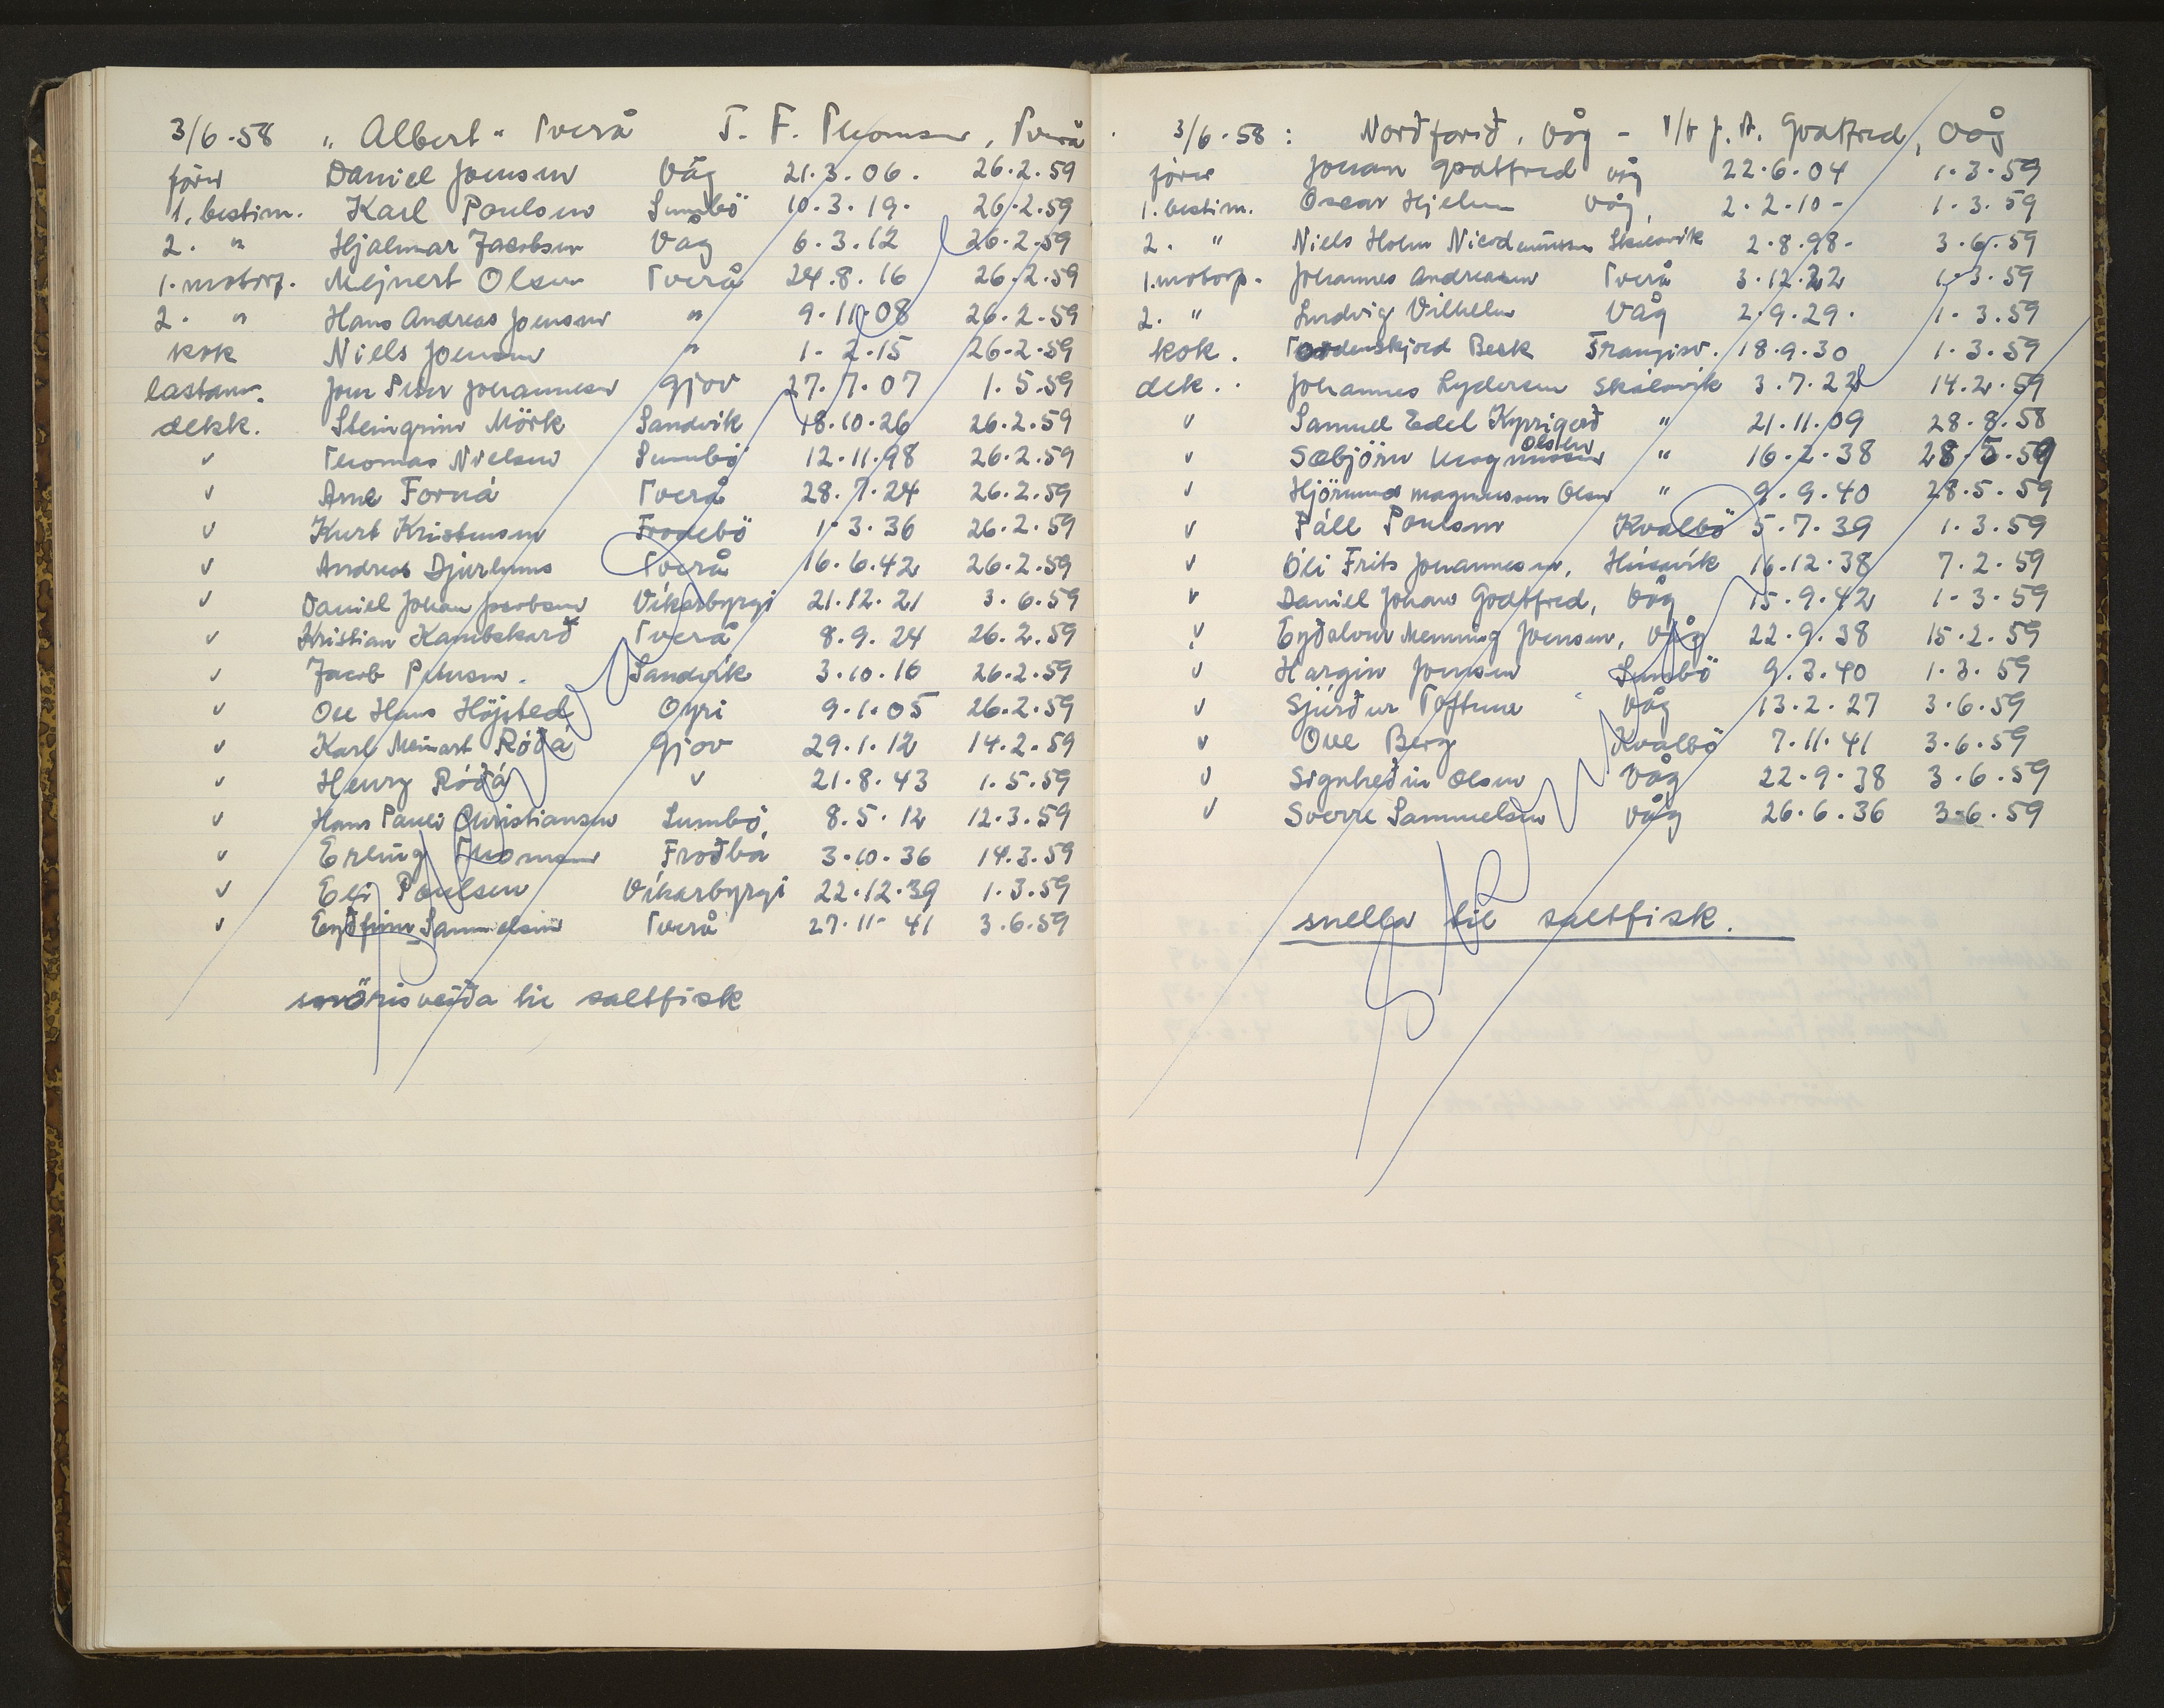 3/6.58 „Albert" Tverå T. F. Thomsen, Tverå
förer Daniel Joensen Våg 21.3.06. 26.2.59
1. bestm. Karl Poulsen Sumbö 10.3.19. 26.2.59
2. " Hjalmar Jacobsen Våg 6.3.12 26.2.59
1. motorp. Mejnert Olsen Tverå 24.8.16 26.2.59
2. " Hans Andreas Joensen " 9.11.08 26.2.59
kok Niels Joensen " 1.2.15 26.2.59
lastam. Jon Peter Johannesen Gjov 27.7.07 1.5.59
dekk. Steingrim Mörk Sandvik 18.10.26 26.2.59
v Thomas Nielsen Sumbö 12.11.98 26.2.59
v Arne Forná Tverå 28.7.24 26.2.59
v Kurt Kristensen Frodebö 1.3.36 26.2.59
v Andreas Djurhuus Tverå 16.6.42 26.2.59
v Daniel Johan Jacobsen Víkarbyrgi 21.12.21 3.6.59
v Kristian Kambskarð Tverå 8.9.24 26.2.59
v Jacob Petersen. Sandvik 3.10.16 26.2.59
v Ole Hans Höjsted Oyri 9.1.05 26.2.59
v Karl Meinart Róðá Gjov 29.1.12 14.2.59
v Henry Róðá v 21.8.43 1.5.59
v Hans Pauli Christiansen Sumbö, 8.5.12 12.3.59
v Erling Thomsen Froðba 3.10.36 14.3.59
v Eli Poulsen Víkarbyrgi 22.12.39 1.3.59
v Eyðfinn Samuelsen Tverå 27.11-41 3.6.59
snörisveiða til saltfisk
3/6.58: Norðfarið, Våg - P/r J. A. Godtfred, Våg
förer Johan Godtfred Våg 22.6.04 1.3.59
1. bestm. Oscar Hjelm Våg, 2.2.10- 1.3.59
2. " Niels Holm Nicodemussen Skálavík 2.8.98- 3.6.59
1. motorp. Johannes Andreasen Tverå 3.12.22 1.3.59
2. " Ludvig Vilhelm Våg 2.9.29. 1.3.59
kok. Tordenskjold Beck Frangisv. 18.9.30 1.3.59
dek.. Johannes Lydersen Skálavík 3.7.22 14.2.59
v Samuel Edel Kyrrigerð " 21.11.09 28.8.58
v Sæbjörn Magnussen Olsen " 16.2.38 28.5.59
v Hjörmund Magnussen Olsen " 9.9.40 28.5.59
v Páll Poulsen Kvalbö 5.7.39 1.3.59
v Óli Frits Johannesen, Húsavík 16.12.38 7.2.59
v Daniel Johan Godtfred, Våg 15.9.42 1.3.59
v Eyðalvur Memming Joensen, Våg 22.9.38 15.2.59
v Hargin Joensen Sumbö 9.3.40 1.3.59
v Sjúrður Toftum Våg 13.2.27 3.6.59
v Ove Berg Kvalbö 7.11.41 3.6.59
v Signheðin Olsen Våg 22.9.38 3.6.59
v Sverre Sammuelsen Våg 26.6.36 3.6.59
snella til saltfisk.